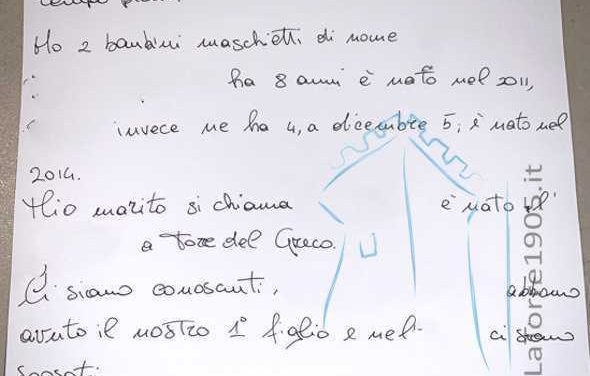 tempo
Ho 2 bambini maschietti di nome
ha 8 anni è nato nel 2011,
invece ne ha 4, a dicembre 5, è nato nel
2014.
Mio marito si chiama è nato il
a Torre del Greco.
Ci siamo conosciuti, abbiamo
avuto il nostro 1° figlio e nel ci siamo
sposati
Latorre1905.it